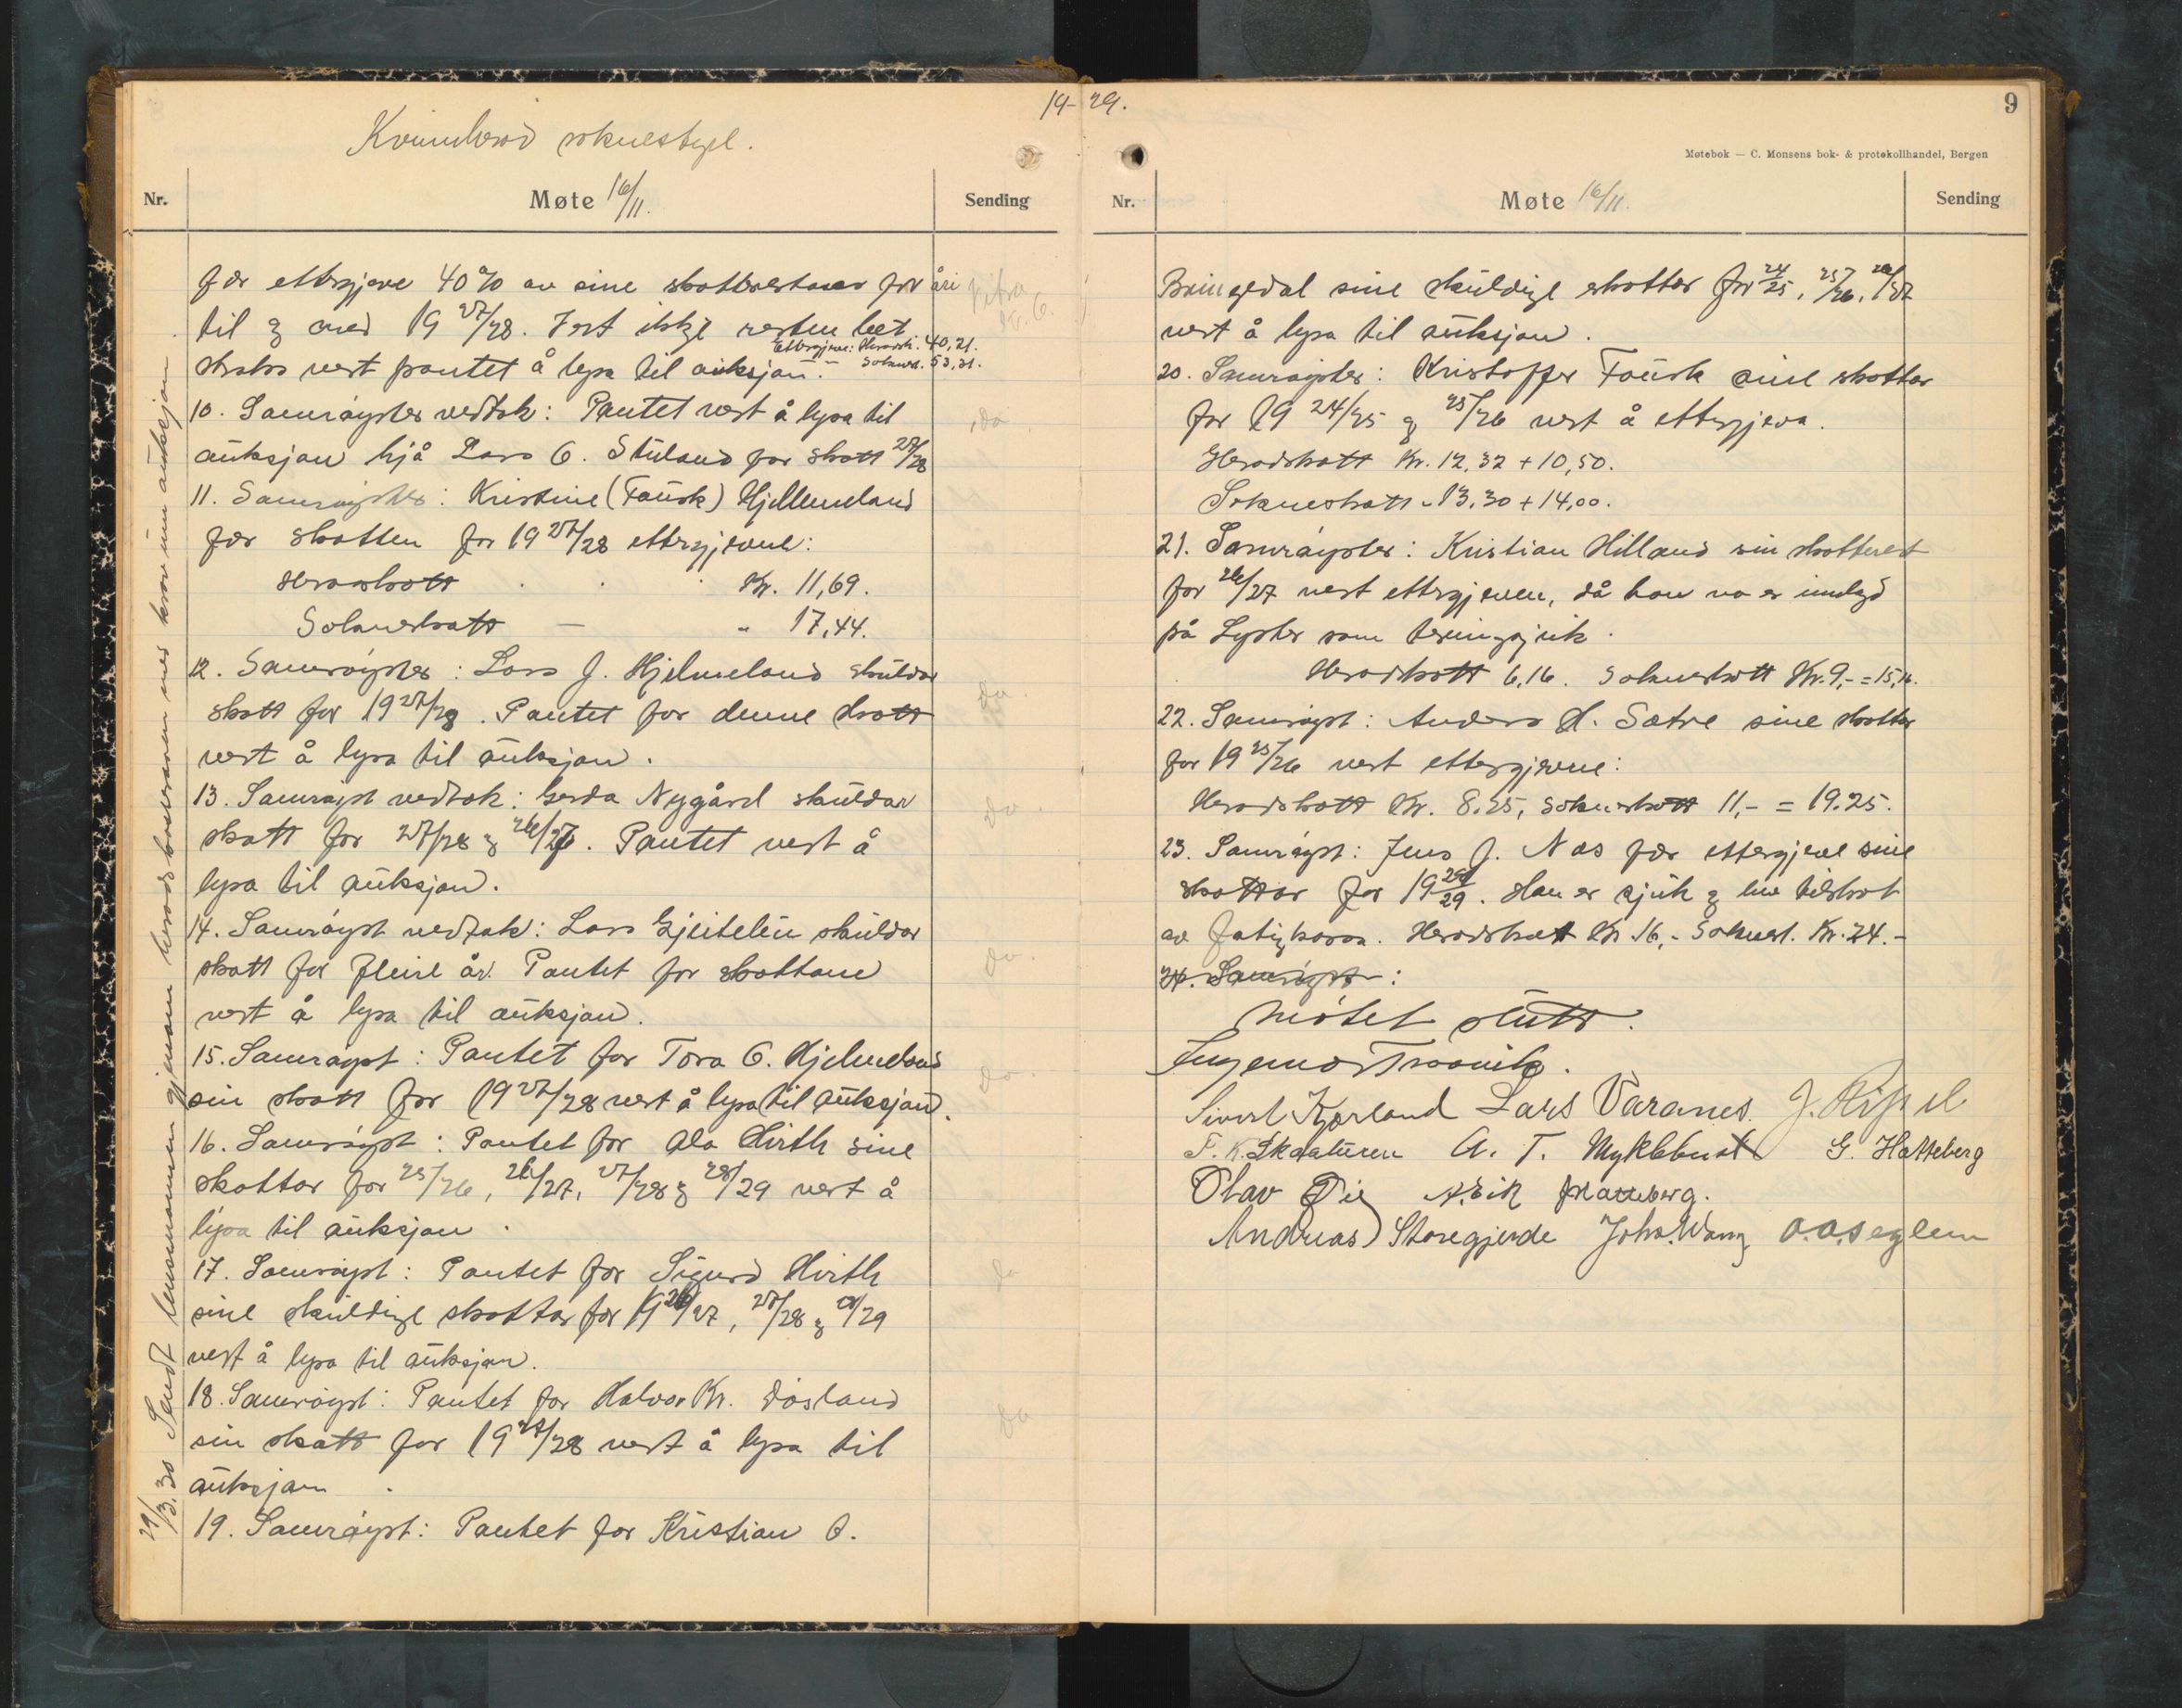 19-29.
Kvinnherad soknestyre.
Nr. Møte 16/11. Sending
fær ettergjeve 40% av sine skatterestansar for åri
til og med 19 27/28. Vert ikkje resten bet.
Ettergjeve: Heradsk. 40,21.
straks vert pantet å lysa til auksjon. — Soknesk. 53,31.
10. Samrøystes vedtok: Pantet vert å lysa til
auksjon hjå Lars O. Stuland for skatt 27/28
11. Samrøystes: Kristine (Tausk) Hjellmeland
fær skatten for 19 27/28 ettergjevne:
Heradskatt . . . Kr. 11,69.
Sokneskatt — „ 17,44.
12. Samrøystes: Lars J. Hjelmeland skuldar
skatt for 19 27/28. Pantet for denne skatt
vert å lysa til auksjon.
13. Samrøyst vedtok: Gerda Nygård skuldar
skatt for 27/28 og 26/27. Pantet vert å
lysa til auksjon.
14. Samrøyst vedtok: Lars Gjeitelin skuldar
skatt for fleire år. Pantet for skattane
vert å lysa til auksjon.
15. Samrøyst: Pantet for Tora O. Hjelmeland
sin skatt for 19 27/28 vert å lysa til auksjon.
16. Samrøyst: Pantet for Ola Hirth sine
skattar for 25/26, 26/27, 27/28 og 28/29 vert å
lysa til auksjon.
17. Samrøyst: Pantet for Sigurd Hirth
sine skuldige skattar for 19 26/27, 27/28 og 28/29
vert å lysa til auksjon.
18. Samrøyst: Pantet for Halvor Kr. Døsland
sin skatt for 19 27/28 vert å lysa til
auksjon.
19. Samrøyst: Pantet for Kristian O.
do
do.
do.
do.
do.
do
do
29/3.30 Sendt lensmannen gjenom heradskasseraren med krav um auksjon.
9
Møtebok — C. Monsens bok- & protokollhandel, Bergen
Nr. Møte 16/11. Sending
Bringedal sine skuldige skattar for 24/25, 25/26, 26/27
vert å lysa til auksjon.
20. Samrøystes: Kristoffer Tausk sine skattar
for 19 24/25 og 25/26 vert å ettergjeva.
Heradskatt Kr. 12,32 + 10,50.
Sokneskatt „ 13,30 + 14,00.
21. Samrøystes: Kristian Hilland sin skatterest
for 26/27 vert ettergjeven, då han no er innlagd
på Lyster som tæringsjuk.
Heradskatt 6,16. Sokneskatt Kr. 9,- = 15,16.
22. Samrøyst: Anders H. Sætre sine skattar
for 19 25/26 vert ettergjevne:
Heradskatt Kr. 8.25, sokneskatt 11,- = 19.25.
23. Samrøyst: Jens J. Nes fær ettergjeve sine
skattar for 19 28/29. Han er sjuk og hev tilskot
av fatigkassa. Heradskatt Kr 16,- Soknesk. Kr. 24.-
24. Samrøyst:
Møtet slutt.
Ingemar Travik.
Sivert Kjærland Lars Varanes. J. Ripel
F. K. Skaaluren A. T. Myklebust G. Hatteberg
Olav Øie A. Eik Hatteberg.
Andreas Storegjerde Johs. Wang O. O. Seglem